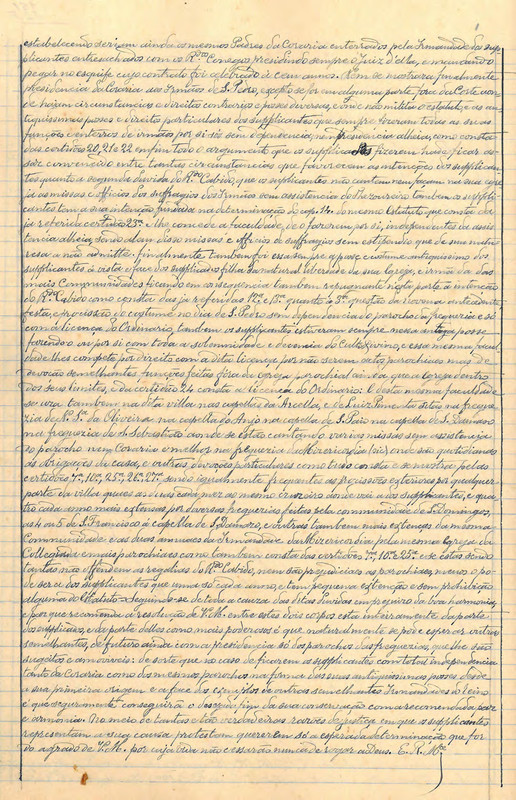 estabelecendo seriam ainda os mesmos Padres da Coraria enterrados pela Irmandade dos sup-
plicantes entresachados com os R.dos Conegos, presidindo sempre o Juiz d'ella, e mandando
pegar no esquife cujo contracto foi celebrado de cem annos. Nem se mostrara finalmente
Presidencia da Coraria aos Irmãos de S. Pedro, excepto se for em alguma parte fora da Corte on-
de hajam circunstancias e direito contrario, e posses diversas, onde não milita o estatuto, e as an-
tiquissimas posses e direito particulares dos supplicantes que sempre fizeram todas as suas
funções e enterros de irmãos por si sós sem dependencia, nem presidencia alheia, como consta
das certidões 20, 21 e 22 em fim todo o argumento que os supplicados fizerem ha de ficar as-
saz convencido entre tantas circunstancias que favorecem as intenções dos supplican-
tes quanto a segunda duvida do R.do Cabido, que os supplicantes não cantem nem façam na sua capella
já as missas e officios dos suffragios dos Irmãos sem assistencia do Thezoureiro tambem os suppli-
cantes tem a sua intenção fundada na determinação do cap. 14 do mesmo Estatuto que consta da
já referida certidão 23ª e lhe concede a faculdade, de o fazerem por si, independentes da assis-
tencia alheia, sendo além disso missas e officios de suffragios sem estipendio que de sua natu-
resa a não admitte. Finalmente tambem foi essa sempre a posse e costume antiquissimo dos
supplicantes á vista e face dos supplicados filha da natural liberdade da sua Igreja, e irmã da das
mais Communidades ficando em consequencia tambem repugnante nesta parte a intenção
do R.do Cabido como consta das já referidas 17ª e 18ª quanto á 3ª questão da novena antecedente
festa, e procissão, do costume no dia de S. Pedro sem dependencia do parocho da freguezia e só
com a licença do Ordinario, tambem os supplicantes estiveram sempre nessa antiga posse
fazendo-o ou por si com toda a solemnidade e decencia do Culto Divino, e essa mesma facul-
dade lhes compete por direito com a dita licença por não serem actos parochiaes mas de
devoção semelhantes funções feitas fora da igreja parochial ainda que a igreja dentro
dos seus limites, e da certidão 24 consta a licença do Ordinario: E desta mesma faculdade
se usa tambem na dita villa nas capellas da Arcella, e de Luiz Pimenta sitas na fregue-
zia de N. S.ra da Oliveira na capella do Anjo na capella de S. Paio na capella de S. Damaso
na freguezia de S. Sebastião aonde se estão cantando varias missas sem assistencia
do parocho nem Coraria e melhor na freguezia da Misericordia (sic) onde são quotidianos
os Arrujaves da casa, e outras devoções particulares como tudo consta e se mostra pelas
certidões 7ª, 10ª, 25ª, 26ª, 27ª sendo igualmente frequentes as procissões exteriores por qualquer
parte da villa quaes as duas cada mez ao mesmo cruzeiro donde vai a dos supplicantes, e qua-
tro cada anno mais extensas por diversas freguezias feitas pela communidade de S. Domingos,
as 4 ou 5 de S. Francisco á capella de S. Damaso, e outras tambem mais extensas da mesma
Communidade e as duas annuaes da Irmandade da Misericordia pela mesma Igreja da
Collegiada e mais parochiaes como tambem consta das certidões 7ª, 10ª e 25ª e se estas sendo
tantas não offendem as regalias do R.do Cabido, nem são prejudiciaes as parochiaes, menos o po-
de ser a dos supplicantes que uma só cada anno, e tem pequena extenção e sem prohibição
alguma do Estatuto. Seguindo-se de toda a cauza das ditas duvidas em prejuizo da boa harmonia,
e paz que recomenda a resolução de V. M. entre estes dois corpos esta inteiramente da parte
dos supplicados, e da parte delles como mais poderosos é que naturalmente se pode esperar outras
semelhantes, de futuro ainda com a presidencia só dos parochos das freguezias, que lhe são
sugeitos e amoviveis: de sorte que no caso de ficarem os supplicantes com total independencia
tanto da Coraria como dos mesmos parochos na forma das suas antiquissimas posses desde
a sua primeira origem e a face dos exemplos de outras semelhantes Irmandades do reino
é que seguramente conseguirá o desejado fim da sua conservação com a recomendada paz
e armonia. No meio de tantas e tão verdadeiras razões de justiça em que os supplicantes
representam a sua causa protestam quererem só a esperada determinação que for
do agrado de V. M. por cuja vida não cessarão nunca de rogar a Deus. E. R. M.ce